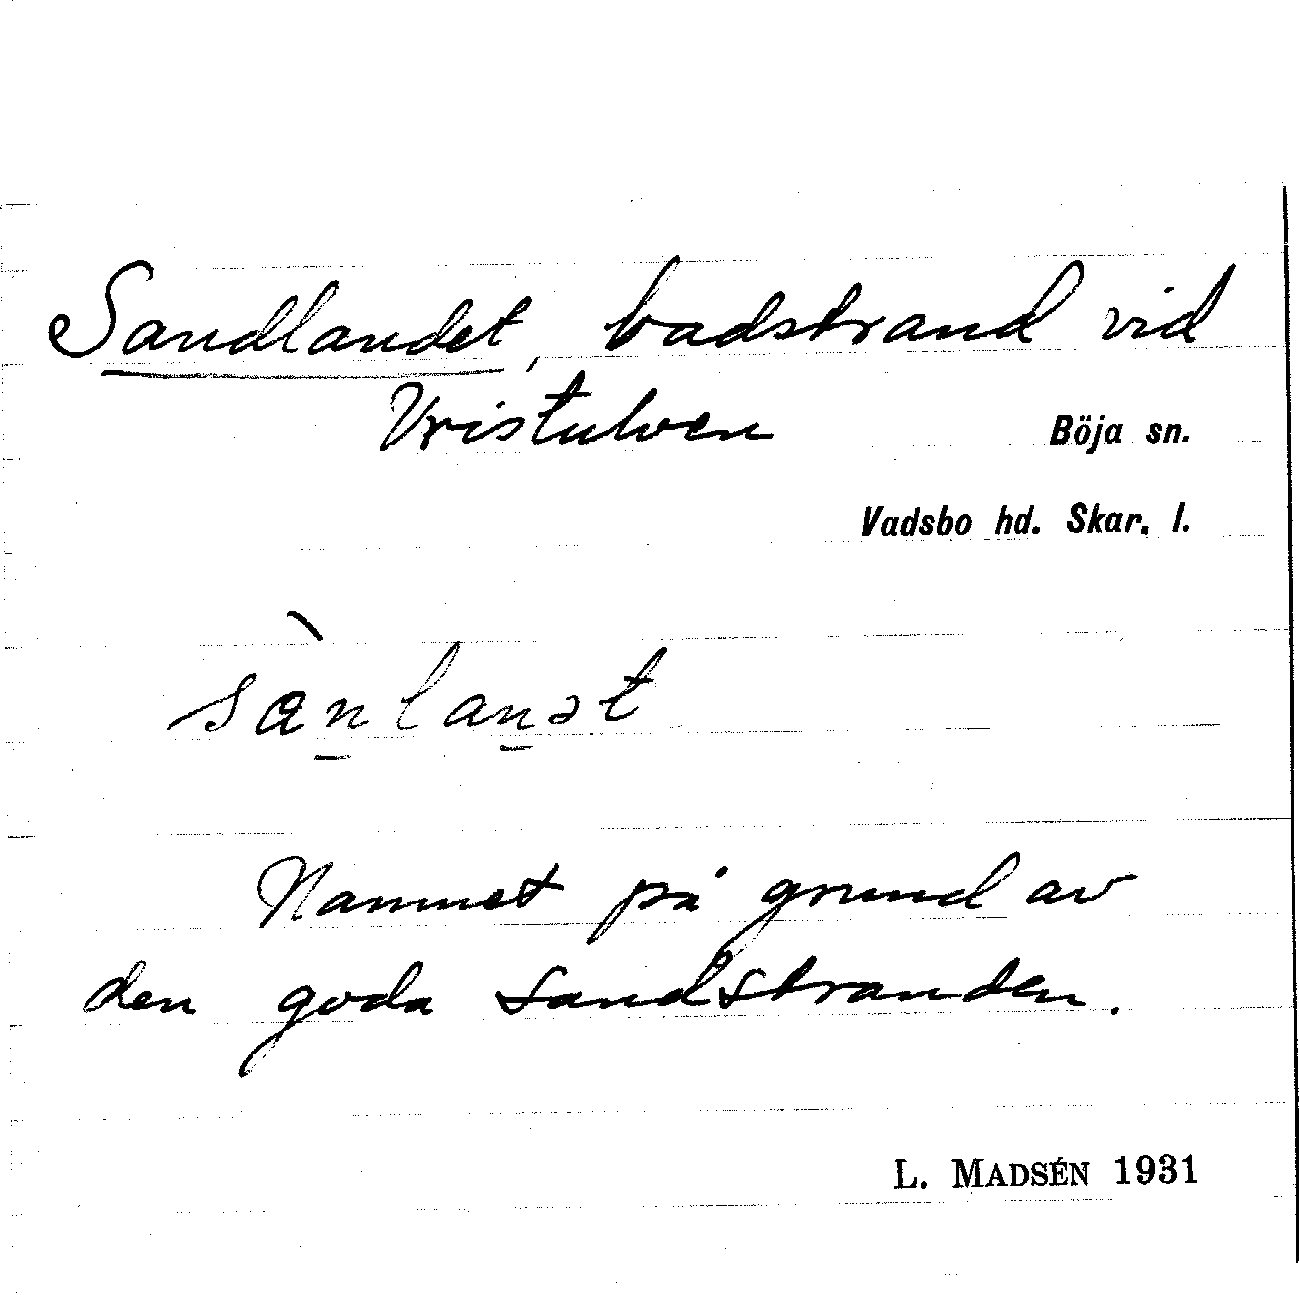 Sandlandet, badstrand vid
Vristulven
Böja sn.
Vadsbo hd. Skar. l.
sàn̠lan̠ət
Namnet på grund av
den goda sandstranden.
L. MADSÉN 1931